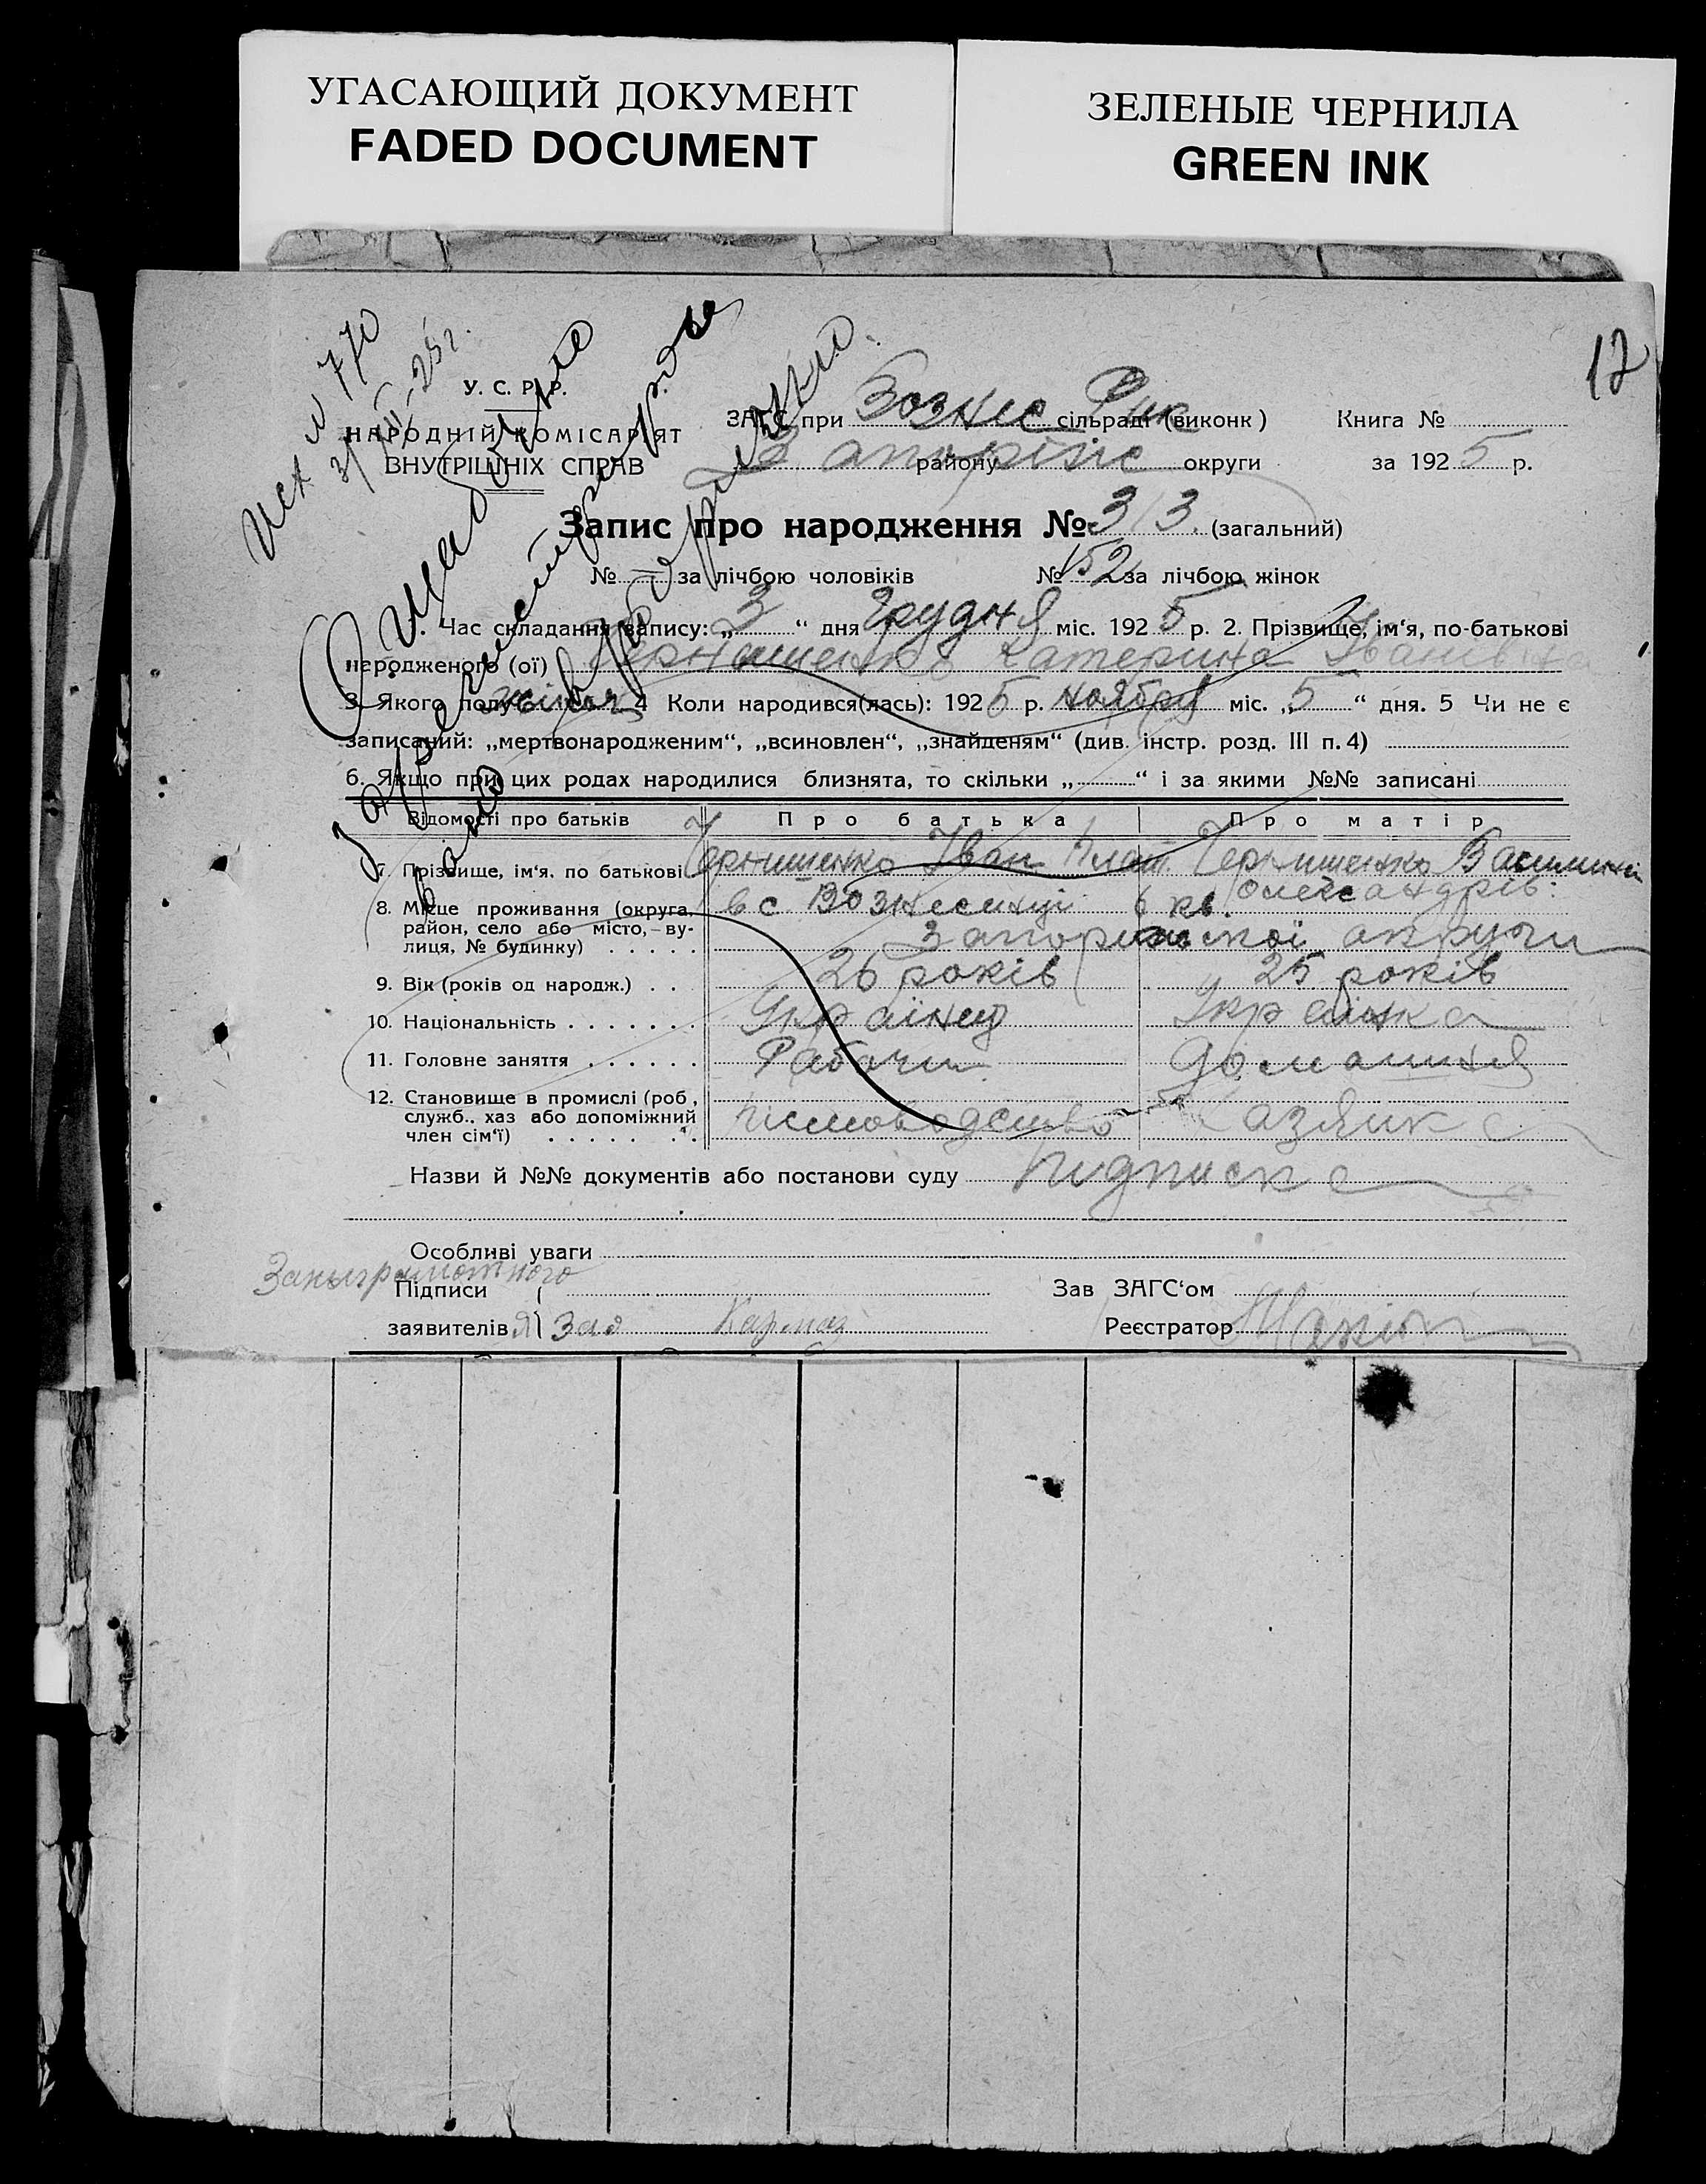 УГАСАЮЩИЙ ДОКУМЕНТ
FADED DOCUMENT
ЗЕЛЕНЫЕ ЧЕРНИЛА
GREEN INK
12
Исх № 770
3/XII-25г.
Ошибочно
зарегистриров
У. С. Р. Р.
НАРОДНІЙ КОМІСАРІЯТ
ВНУТРІШНІХ СПРАВ
ЗАГС при Вознес Рик сільраді (виконк) Книга №
Запоріз району округи за 1925 р.
Запис про народження № 313. (загальний)
№ — за лічбою чоловіків № 152 за лічбою жінок
1. Час складання запису: „3“ дня Грудня міс. 1925 р. 2. Прізвище, ім‘я, по-батькові
народженого (ої) Чернишенко Катерина Іванівна
3. Якого полу жіноч 4 Коли народився(лась): 1925 р. ноября міс. „5“ дня. 5 Чи не є
записаний: „мертвонародженим“, „всиновлен“, „знайденям“ (див. інстр. розд. III п. 4)
6. Якщо при цих родах народилися близнята, то скільки „ “ і за якими №№ записані
Відомості про батьків Про батька Про матір
7. Прізвище, ім‘я. по батькові Чернишенко Іван Плат. Чернишенко
Олександрів.
8. Місце проживання (округа, в с Вознесенці кв.
район, село або місто,- ву-
лиця, № будинку) . . . . . Запорізької округи
9. Вік (років од народж.) . . 26 років 25 років
10. Національність . . . . . . . Українец Українка
11. Головне заняття . . . . . . Рабочи Домашня
12. Становище в промислі (роб,
служб., хаз або допоміжний
член сім‘ї) . . . . . . . письмоводство
Назви й №№ документів або постанови суду Підписка
Особливі уваги
Заныграмотного
Підписи Зав ЗАГС‘ом
заявителів Кармаз Реєстратор